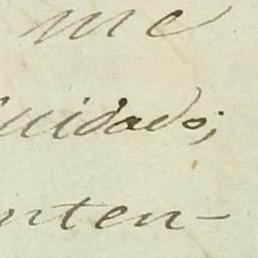 me
cuidado;
nten-